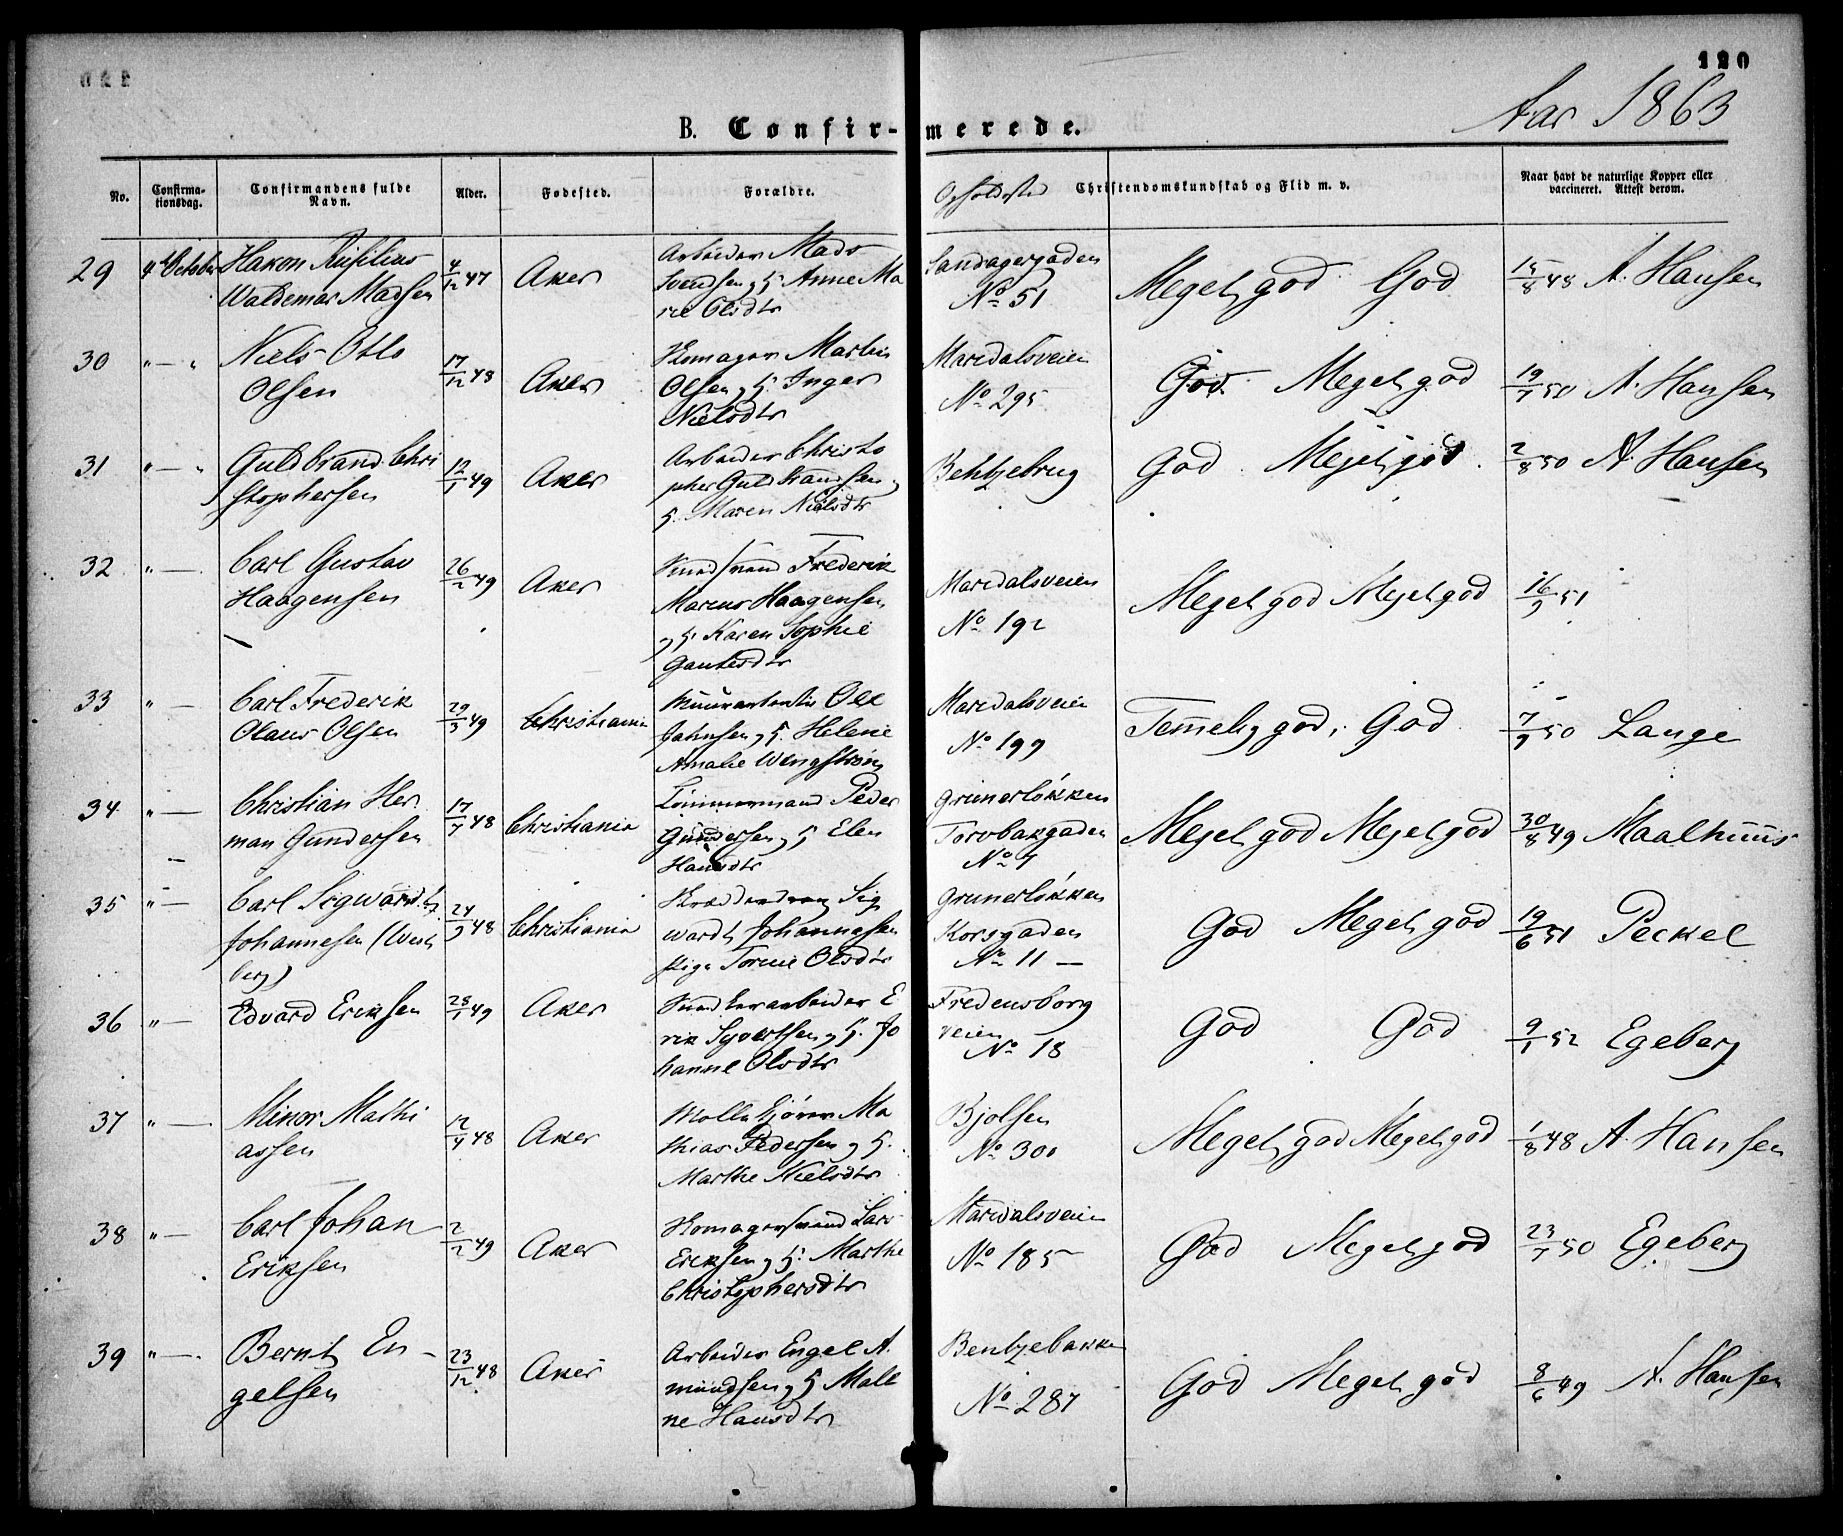 120
Aar 1863
B. Confir-merede.
No.
Confirma-
tionsdag.
Confirmandens fulde
Navn.
Alder.
Fødested.
Forældre.
Opholdssted
Christendomskundskab og Flid m. v.
Naar havt de naturlige Kopper eller
vaccineret. Attest derom.
29 4de October Hakon Waldemar Madsen 4/12 47 Aker
Arbeider Mads
Svendsen og H. Anne Ma
rie Olsdtr
Sandagergaden
No 51
Meget god God 15/8 48 A. Hansen
30 " — " Niels Otto
Olsen
17/12 48 Aker
Skomager Martin
Olsen og H. Inger
Nielsdtr
Maridalsveien
No 295
God. Meget god 19/7 50 A. Hansen
31 " — " Guldbrand Chri
stophersen
12/1 49 Aker
Arbeider Christo
pher Guldbrandsen og
H. Maren Nielsdtr
Bentzebrug
God Meget god 2/8 50 A. Hansen
32 " — Carl Gustav
Haagensen
26/2 49 Aker
Frederik
Marcus Haagensen
og H. Karen Sophie
Gautesdtr
Maridalsveien
No 192
Meget god Meget god 16/9 51
33 " — Carl Frederik
Olaus Olsen
29/3 49 Christiania
Ole
Johnsen og H. Helene
Amalie Wengstrøm
Maridalsveien
No 199
Temelig god, God 7/9 50 Lange
34 " — Christian Her
man Gundersen
17/7 48 Christiania
Tömmermand Peder
Gundersen og H Elen
Hansdtr
Grunerløkken
Torvbakgaden
No 7
Meget god Meget god 30/8 49 Maalhuus
35 " — Carl Sigwardt
Johannesen (West
berg)
24/9 48 Christiania
Sig
wardt Johannesen
Pige Torine Olsdtr
Grunerløkken
Korsgaden
No 11 —
God Meget god 19/6 51 Peckel
36 " — Edvard Eriksen 28/1 49 Aker
E
rik Syvertsen og H. Jo
hanne Olsdtr
Fredensborg
veien
No 18
God God 9/1 52 Egeberg
37 " — Minor Mathi
assen
12/4 48 Aker
Ma
thias Pedersen og H.
Marthe Nielsdtr
Bjølsen
No 300
Meget god Meget god 1/8 48 A. Hansen
38 " — Carl Johan
Eriksen
2/2 49 Aker
Skomagersvend Lars
Eriksen og H. Marthe
Christophersdtr
Maridalsveien
No 185
God Meget god 23/7 50 Egeberg
39 " — Bernt En-
gelsen
23/12 48 Aker
Arbeider Engel A.
mundsen og H Mall
ne Hansdtr
Bentzebakken
No 287
God Meget god 8/6 49 A. Hansen